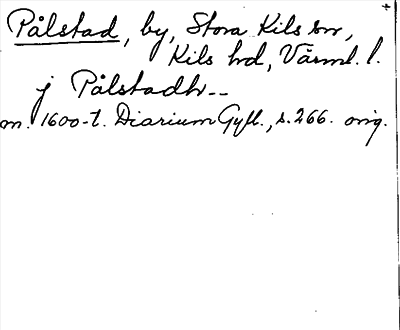 Pålstad, by, Stora Kils sn,
Kils hd, Värml. l.
j Pålstadh--
m. 1600-t. Diarium Gyll., s. 266. orig.